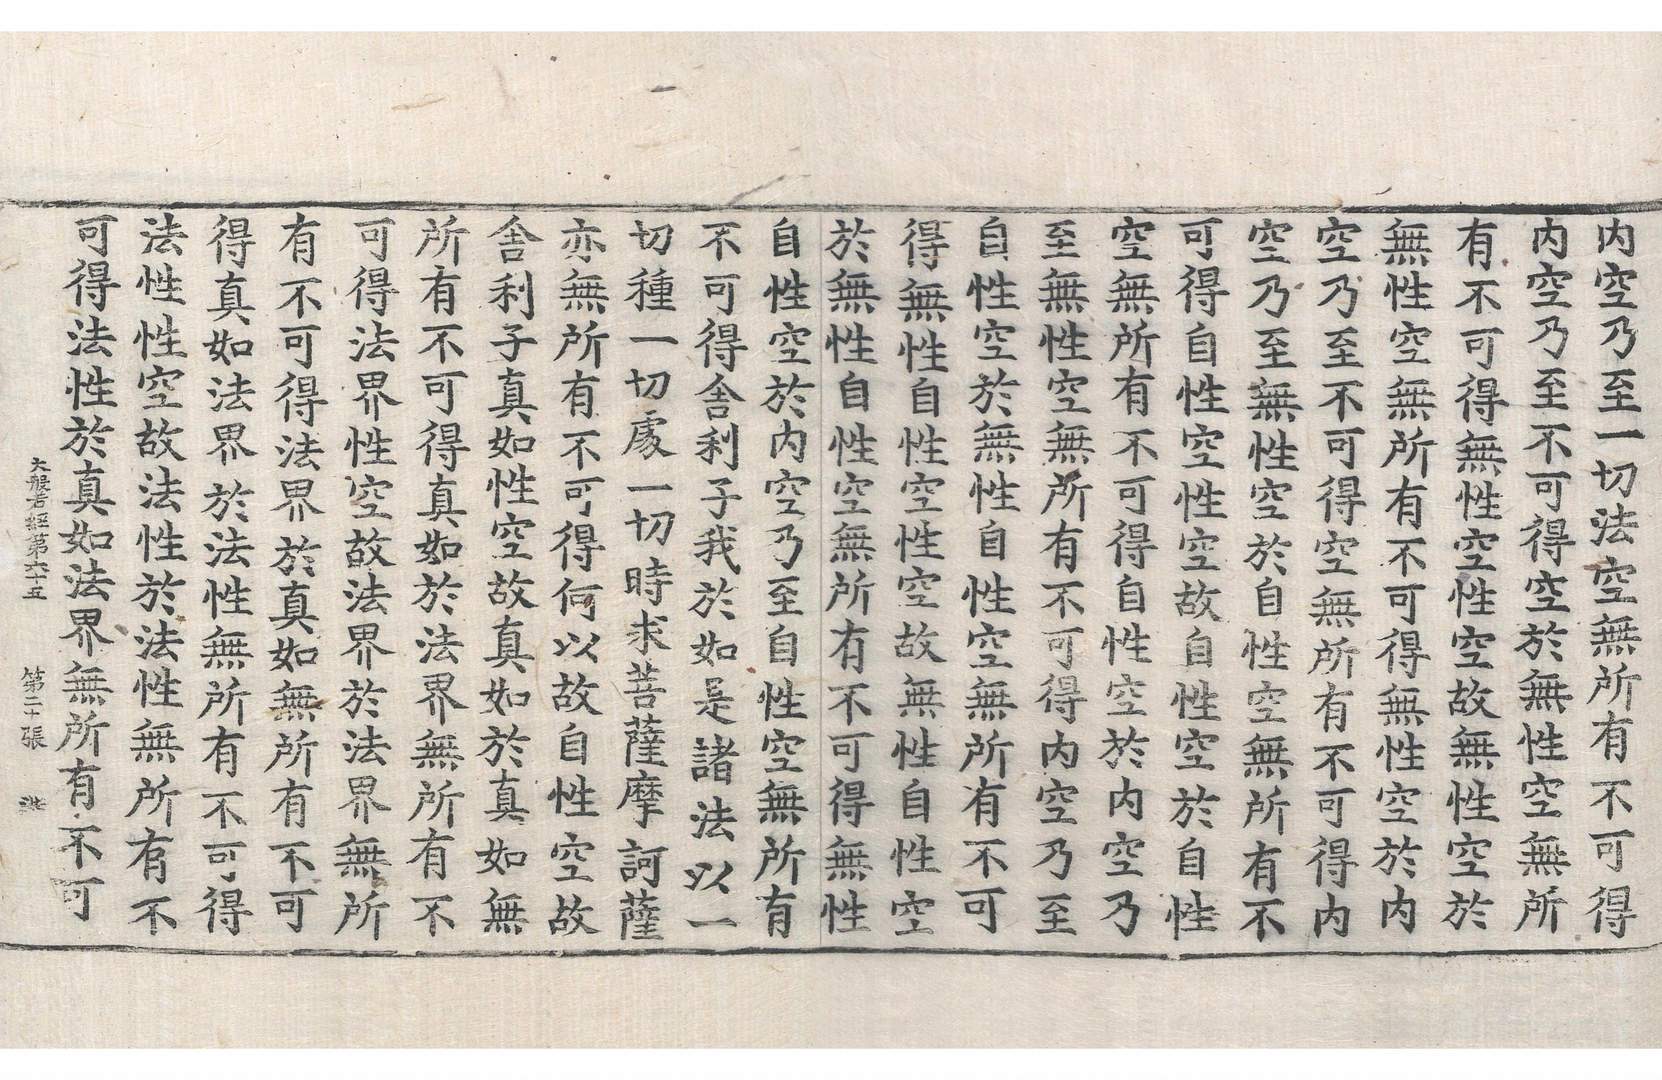 内空乃至一切法空無所有不可得
内空乃至不可得空於無性空無所
有不可得無性空性空故無性空於
無性空無所有不可得無性空於内
空乃至不可得空無所有不可得内
空乃至無性空於自性空無所有不
可得自性空性空故自性空於自性
空無所有不可得自性空於内空乃
至無性空無所有不可得内空乃至
自性空於無性自性空無所有不可
得無性自性空性空故無性自性空
於無性自性空無所有不可得無性
自性空於内空乃至自性空無所有
不可得舍利子我於如是諸法以一
切種一切處一切時求菩薩摩訶薩
亦無所有不可得何以故自性空故
舍利子真如性空故真如於真如無
所有不可得真如於法界無所有不
可得法界性空故法界於法界無所
有不可得法界於真如無所有不可
得真如法界於法性無所有不可得
法性性空故法性於法性無所有不
可得法性於真如法界無所有不可
大般若經第六十五 第二十張